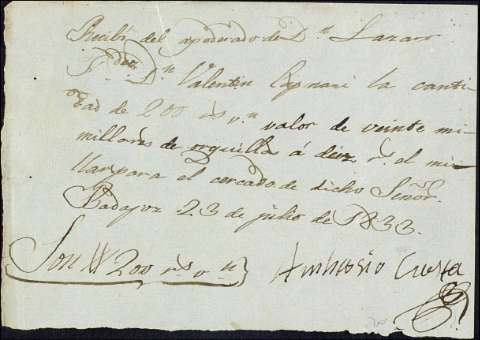 Recibí del apoderado de Dn Lazaro
Dn Valentin la canti
dad de 200 rs vn valor de veinte mi
millares de orquilla á diez rs el mi
llar para el cercado de dicho Señor.
Badajoz 23 de julio de 1833.
Son # 200 rs vn
Ambrosio Cuesta